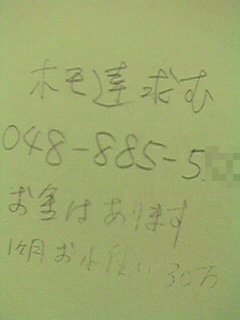 ホモ達求む
048-885-5
お金はあります
1ヶ月お小使い30万